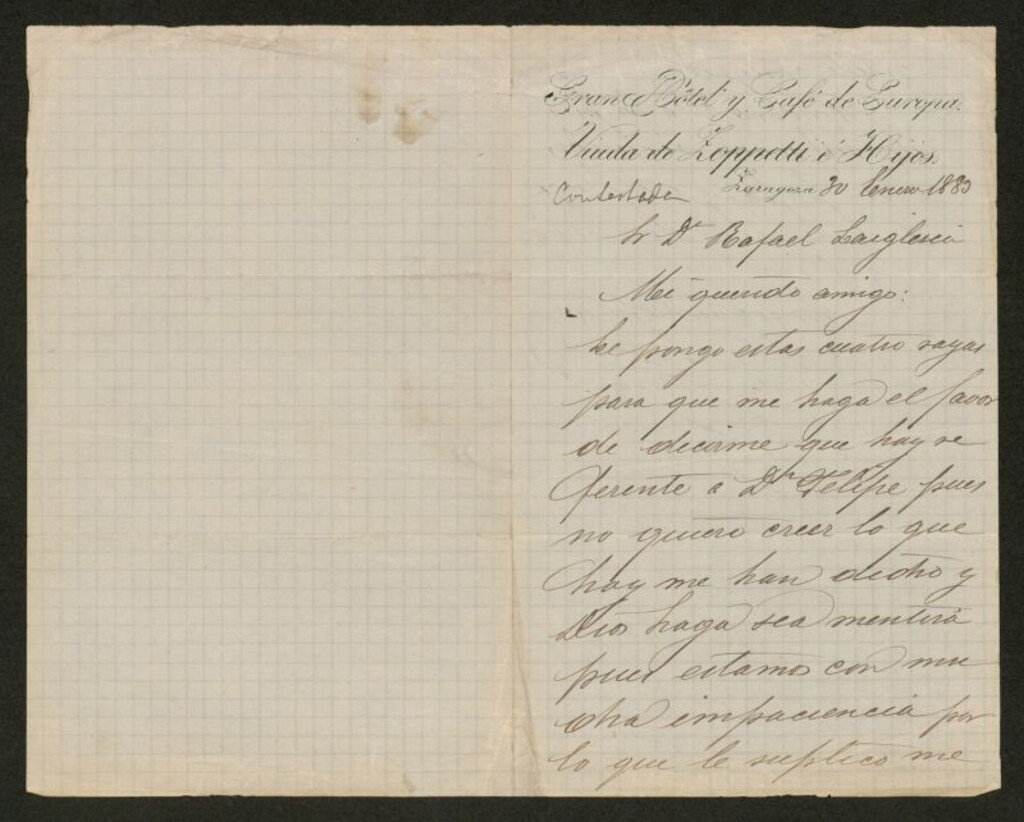 Gran Hôtel y Café de Europa.
Viuda de Zoppetti é Hijos.
Contestada Zaragoza 30 Enero 1883
Sr Dn Rafael Laiglesia
Mi querido amigo:
Le pongo estas cuatro rayas
para que me haga el favor
de decirme que hay re
ferente a Dn Felipe pues
no quiero creer lo que
hoy me han dicho y
Dios haga sea mentira
pues estamos con mu
cha impaciencia por
lo que le suplico me